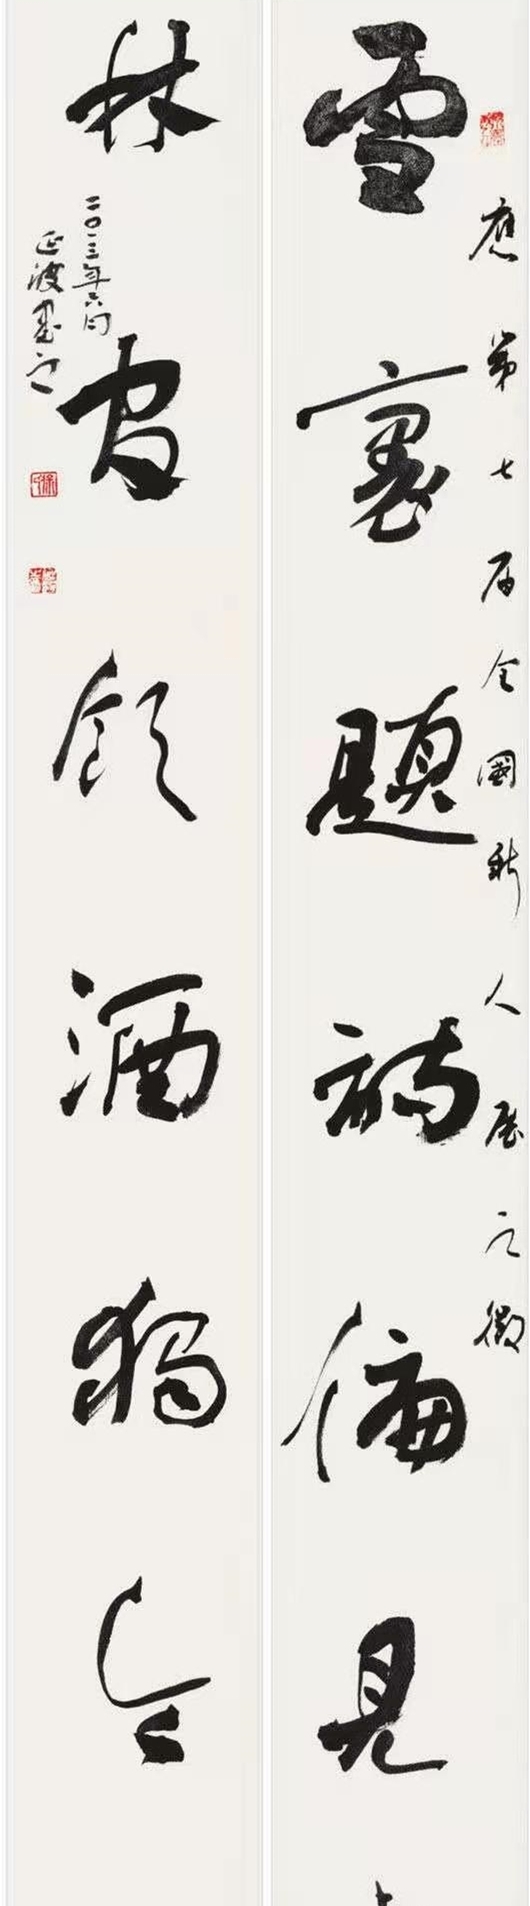 雪裏題詩偏見
應第七屆全國新人展之徵
林間飲酒獨
二〇一三年六月
延波書之